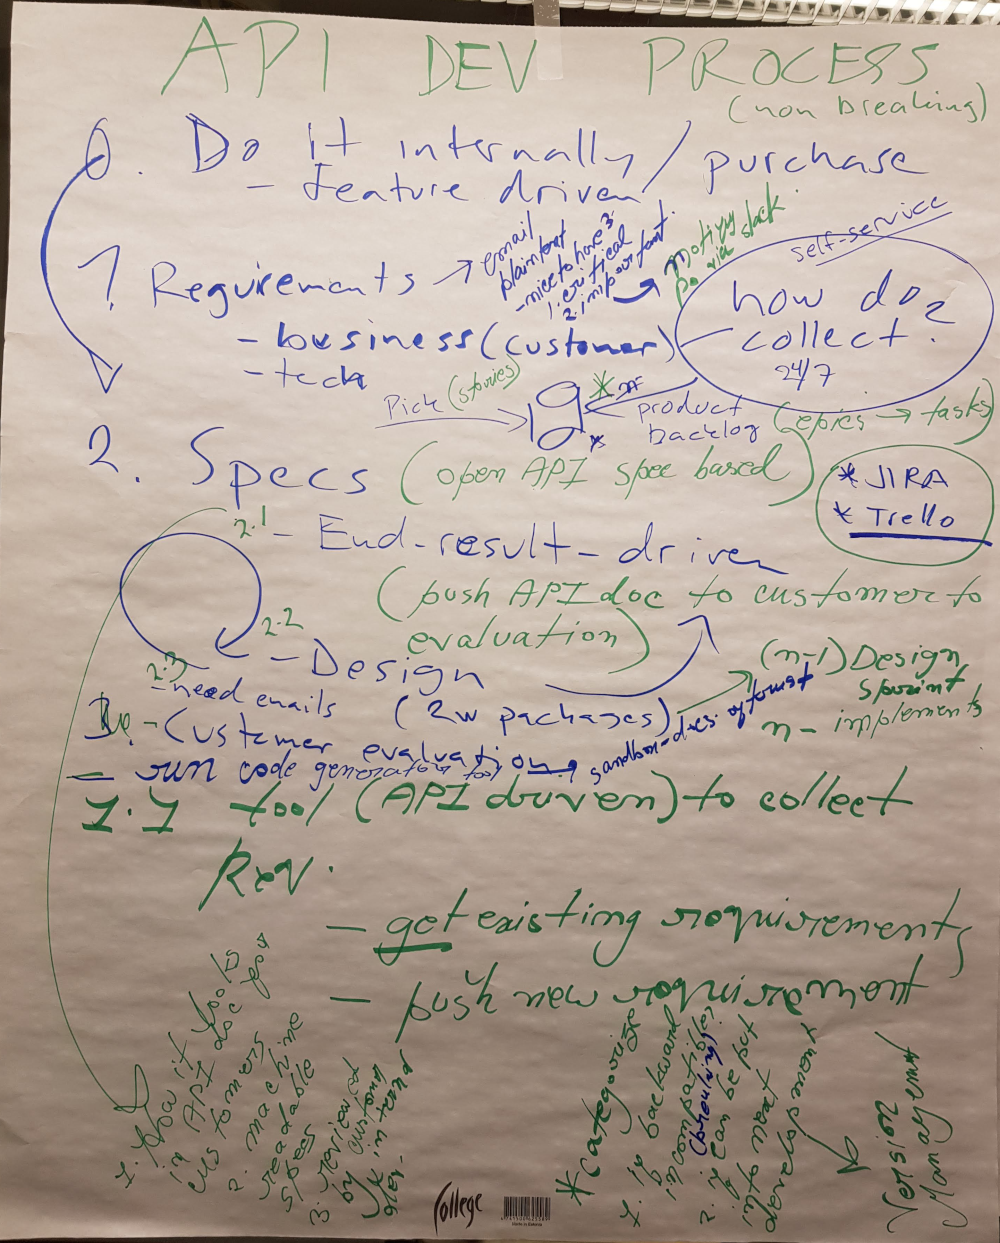 API DEV PROCESS
(non breaking)
0. Do it internally / purchase
- feature driven
1. Requirements → email
plaintext
- nice to have 3.
1. critical
2. important.
→ notify
PO via slack
self-service
how do
collect ?
24/7
- business (customer)
- tech
Pick (stories)
product
backlog (epics → tasks)
2. Specs (open API spec based)
* JIRA
* Trello
2.1 - End-result-driven
(push API doc to customer to
evaluation)
2.2 - Design
(2w packages)
(n-1) Design
sprint
n - implements
2.3
- need emails
- Customer evaluation → sandbox
- run code generation tool
1.1 tool (API driven) to collect
Req.
- get existing requirements
- push new requirement
1. how it looks
in API doc for
customers
2. machine
readable
specs
3. reviewed
by customer
* categorize
1. if backward
incompatible
(breaking)
2. if can be put
into next
development
Version
Management
College